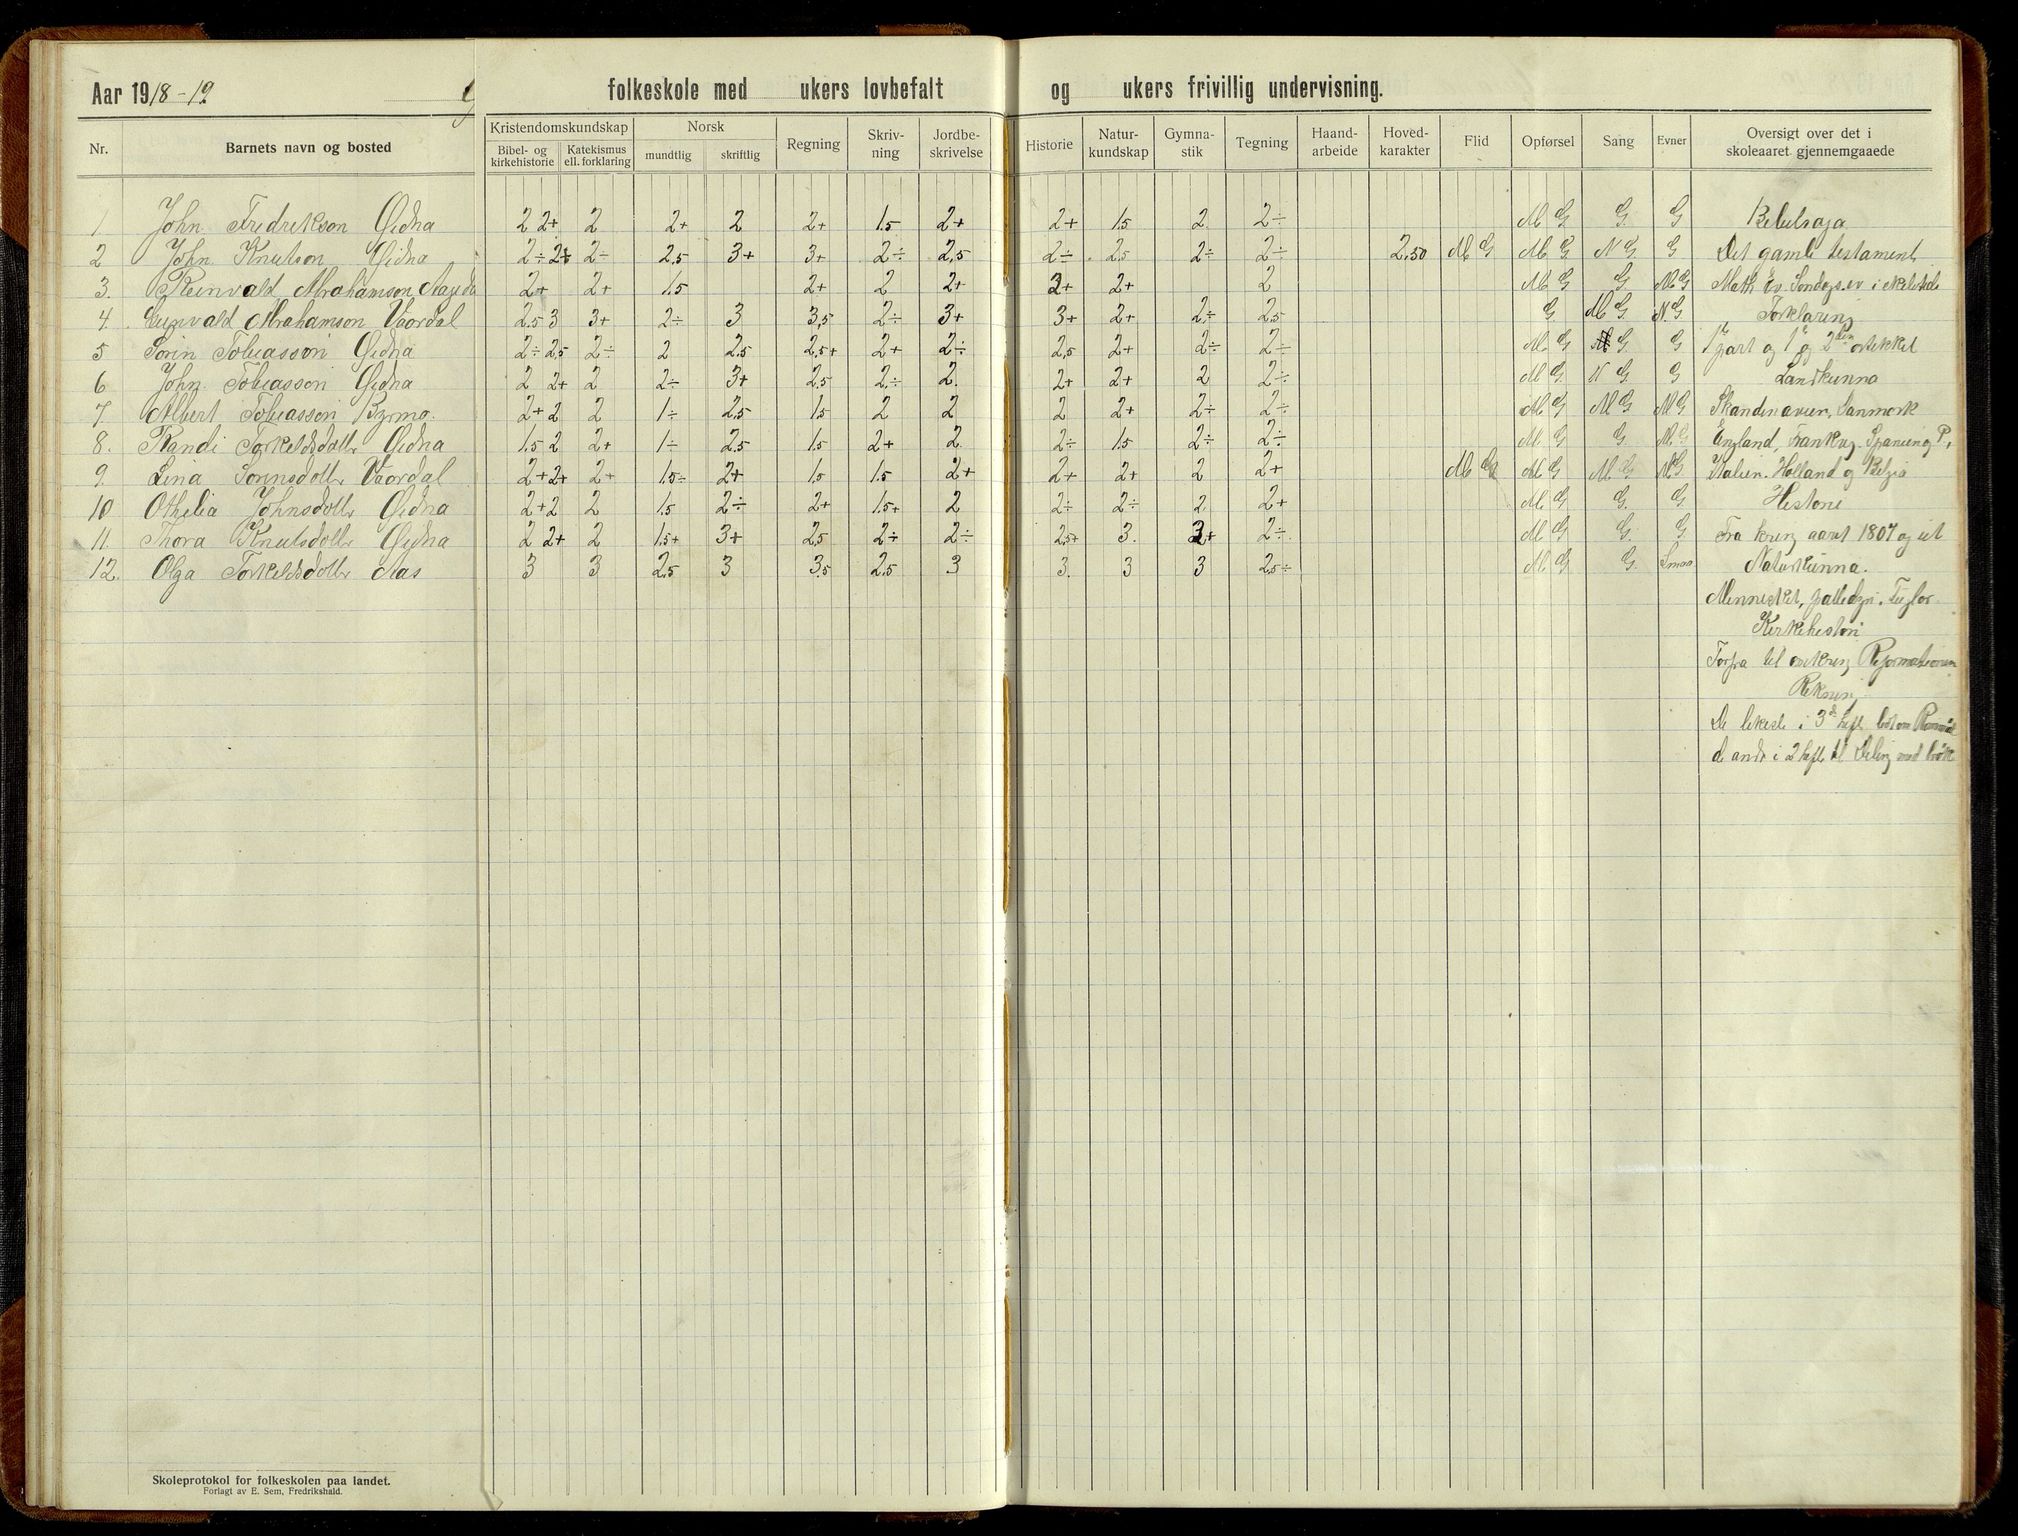 Aar 1918-19. folkeskole med ukers lovbefalt og ukers frivillig undervisning.
Nr. Barnets navn og bosted Kristendomskundskap Bibel- og kirkehistorie Katekismus ell. forklaring Norsk mundtlig skriftlig Regning Skriv-ning Jordbe-skrivelse Historie Natur-kundskap Gymna-stik Tegning Haand-arbeide Hoved-karakter Flid Opførsel Sang Evner Oversigt over det i skoleaaret gjennemgaaede
1 John Fredrikson Gidna 2 2+ 2 2+ 2 2+ 1.5 2+ 2+ 1.5 2 2÷ M G G. G Bibelsoga
2 John Knutson Gidna 2÷ 2+ 2÷ 2,5 3+ 3+ 2÷ 2,5 2÷ 2,5 2÷ 2÷ 2.50 M G M G N G G Det gamle testament
3. Reinvald Abrahamson 2+ 2+ 1.5 2+ 2 2+ 2+ 2+ 2 M G G M G Math Ev.
4. Abrahamson Vaordal 2.5 3 3+ 2÷ 3 3,5 2÷ 3+ 3+ 2+ 2÷ 2.5 G M G N.G Forklaring
5 Sorin Tobiasson Gidna 2÷ 2,5 2÷ 2 2.5 2,5+ 2+ 2÷ 2,5 2+ 2÷ 2÷ M. G G G part og 1 og 2den artikkel
6 John Tobiasson Gidna 2 2+ 2 2÷ 3+ 2,5 2÷ 2. 2+ 2+ 2 2÷ M G. N G. G Landkunna
7. Albert Tobiasson Byrmo. 2+ 2 2 1÷ 2.5 1.5 2 2 2 2+ 2÷ 2÷ M G M G M G Skandinavien, Danmork
8. Randi Torkeldsdottr Gidna 1.5 2 2+ 1÷ 2.5 1.5 2+ 2 2÷ 1.5 2÷ 2÷ M G G. M.G England, Frankrg. Spanien og P.,
9. Lina Sorinsdottr Vaordal 2+ 2+ 2+ 1.5÷ 2+ 1.5 1.5 2+ 2+ 2+ 2 2+ M G M G M G M G Italien. Holland og Belgia
10 Othelia Johnsdottr Gidna 2+ 2 2 1.5 2÷ 2+ 1.5+ 2 2÷ 2÷ 2 2+ M G G. G. Historie
11. Thora Knutsdottr Gidna 2 2+ 2 1.5+ 3+ 2.5 2÷ 2÷ 2.5+ 3. 2+ 2÷. M G G. G. Fra kring aaret 1807 og ut
12. Olga Torkeldsdottr Aas 3 3 2.5 3 3.5 2.5 3 3. 3 3 2.5÷ M. G G. Smaa Naturkunna.
Mennesket, Fuglar.
Kirkehistori
Forfra til omkring Reformationen
Rekning
De likeste i 3d heft
d andr i 2 heft til Deling med brøk
Skoleprotokol for folkeskolen paa landet.
Forlagt av E. Sem, Fredrikshald.